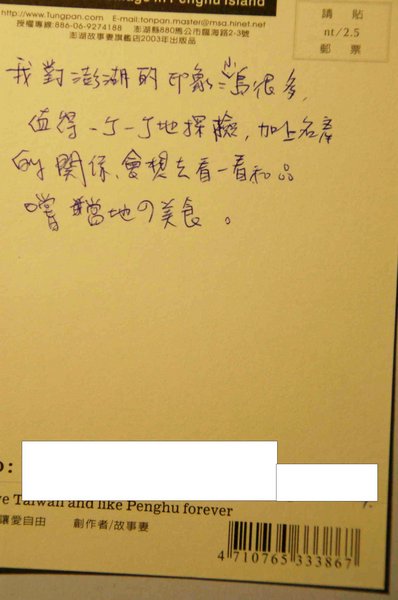 in Penghu Island
http://www.Tungpan.com E-mail:tonpan.master@msa.hinet.net
授權專線:886-06-9274188 澎湖縣880馬公市臨海路2-3號
澎湖故事妻旗艦店2003年出版品
請 貼
nt/2.5
郵 票
我對澎湖的印象:小島很多,
值得一ㄎ一ㄎ地探險,加上名產
的關係,會想去看一看和品
嚐當地の美食。
Taiwan and like Penghu forever
讓愛自由 創作者/故事妻
4 710765 333867